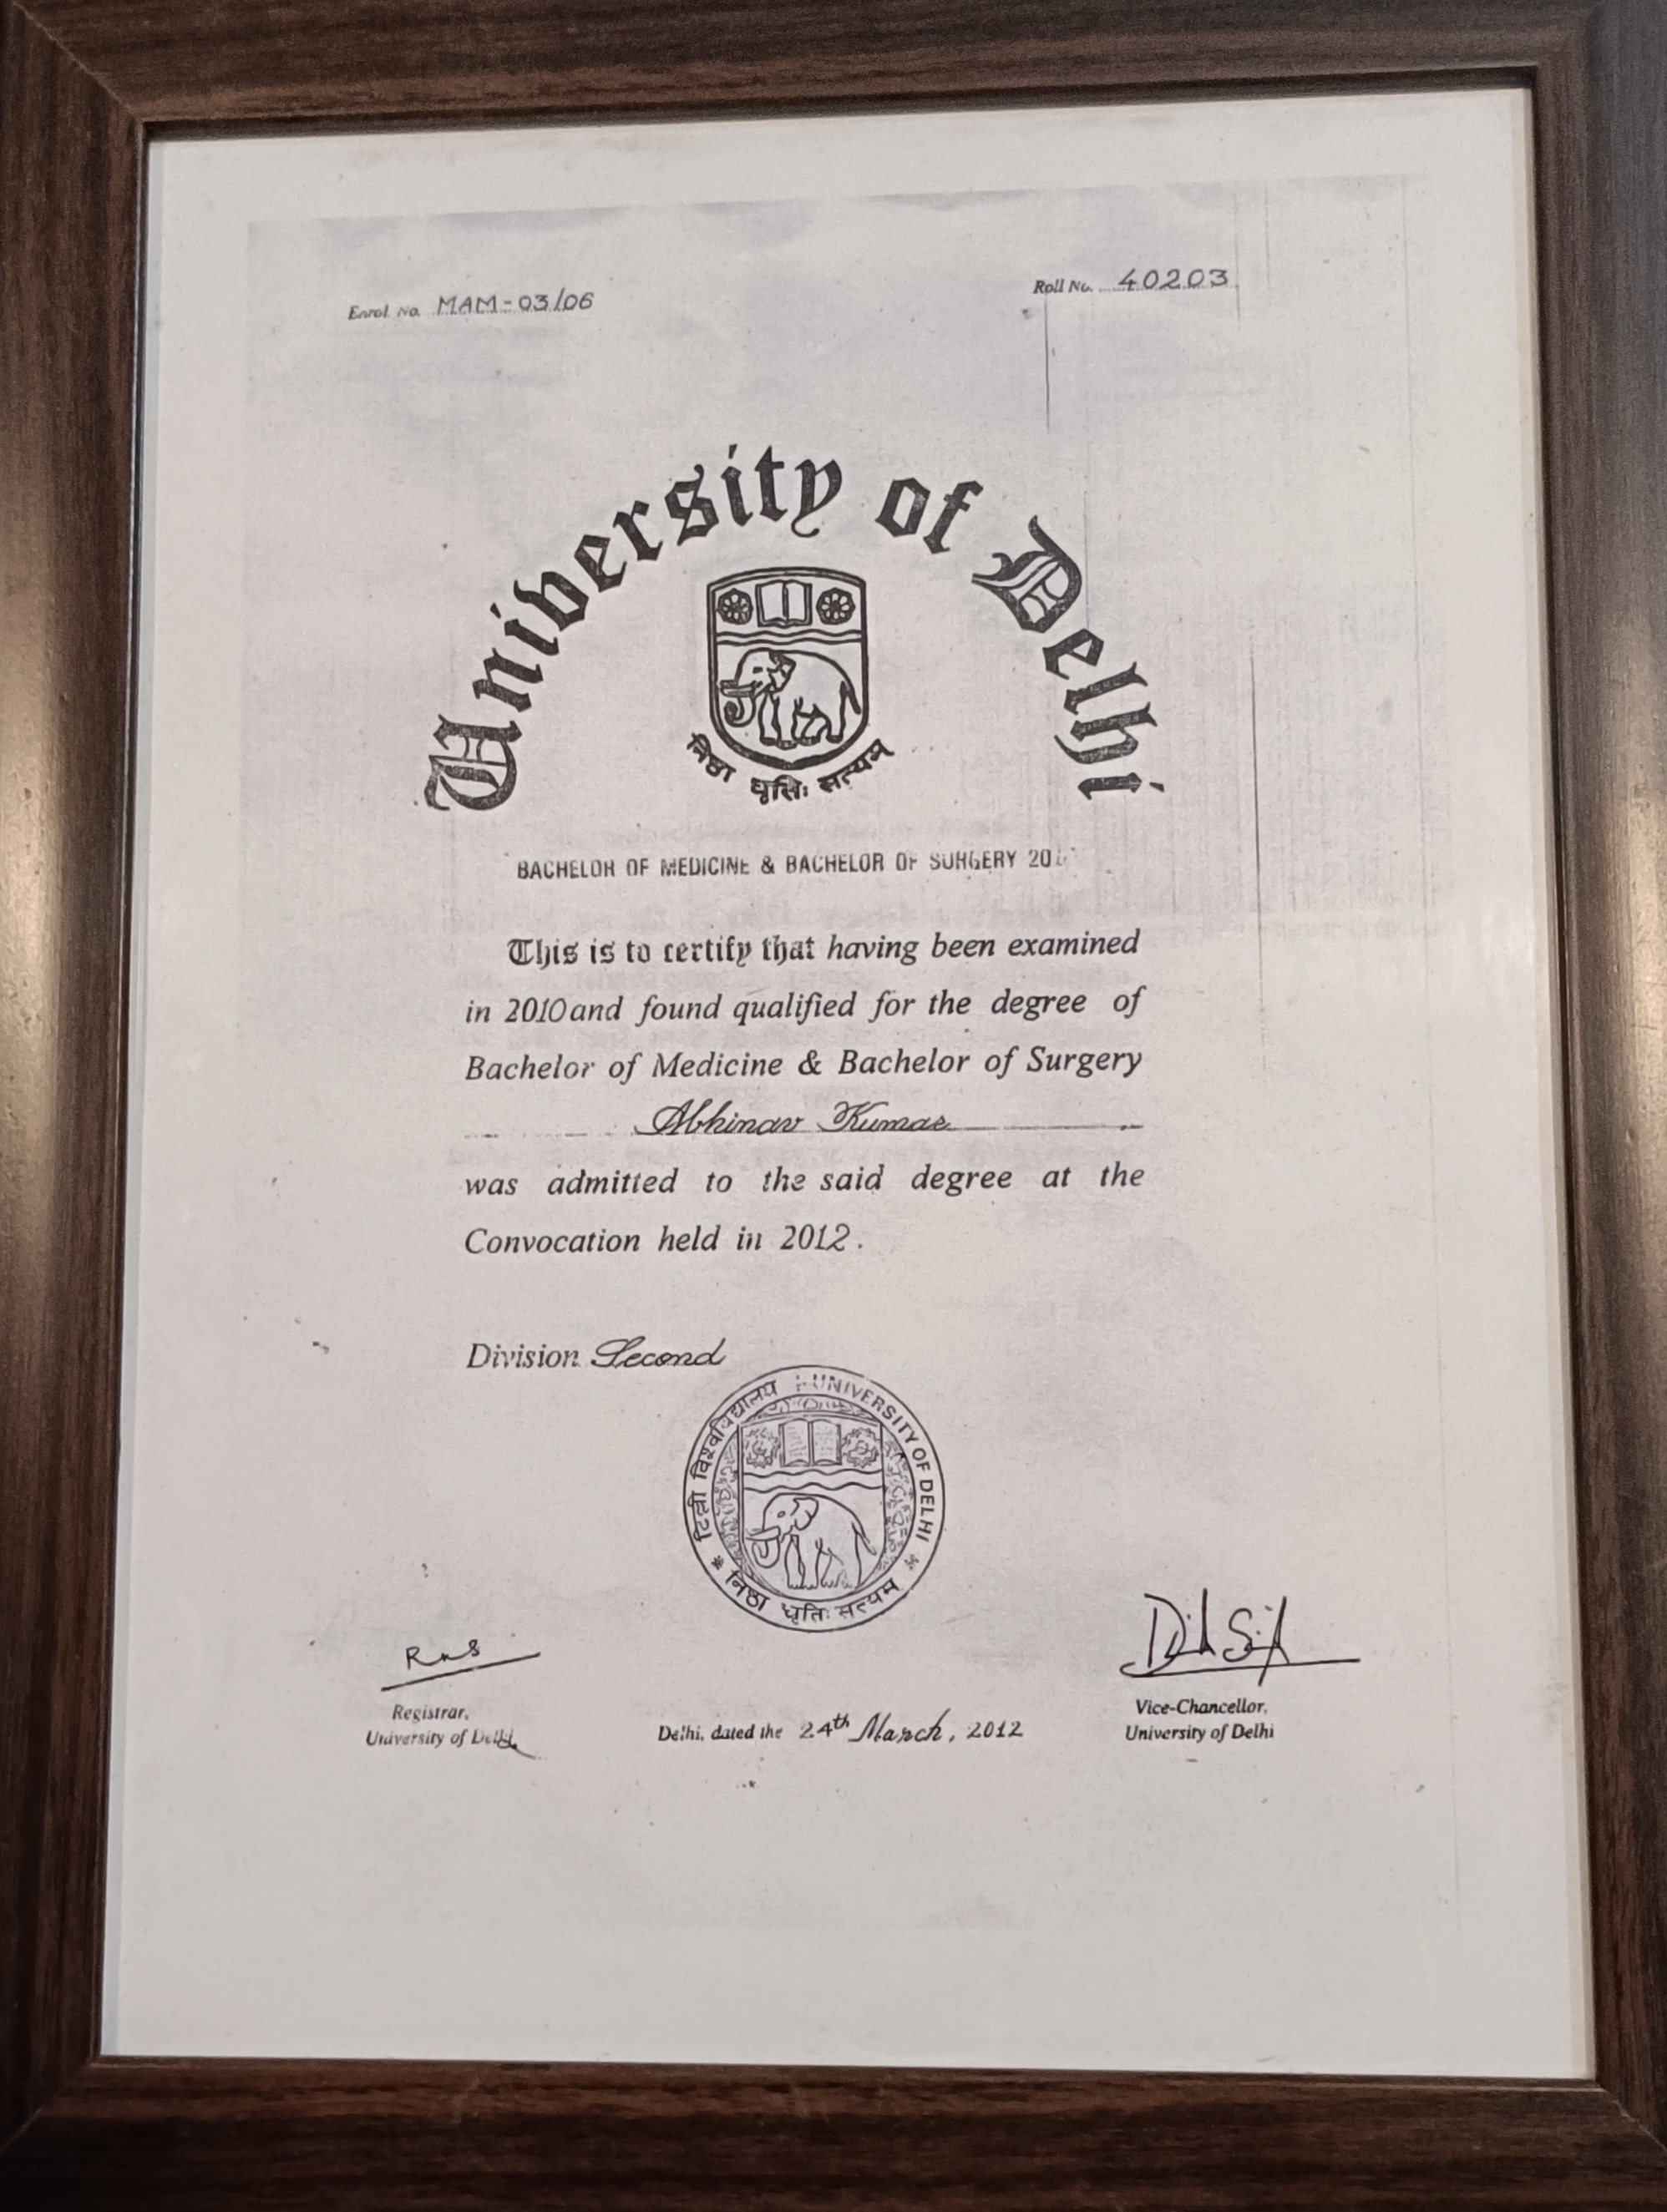 Enrol. No. MAM-03/06
Roll No. 40203
University of Delhi
निष्ठा धृतिः सत्यम्
BACHELOR OF MEDICINE & BACHELOR OF SURGERY
This is to certify that having been examined
in 2010 and found qualified for the degree of
Bachelor of Medicine & Bachelor of Surgery
Abhinav Kumar
was admitted to the said degree at the
Convocation held in 2012.
Division Second
दिल्ली विश्वविद्यालय UNIVERSITY OF DELHI
निष्ठा धृतिः सत्यम्
Registrar,
University of Delhi
Delhi, dated the 24th March, 2012
Vice-Chancellor,
University of Delhi